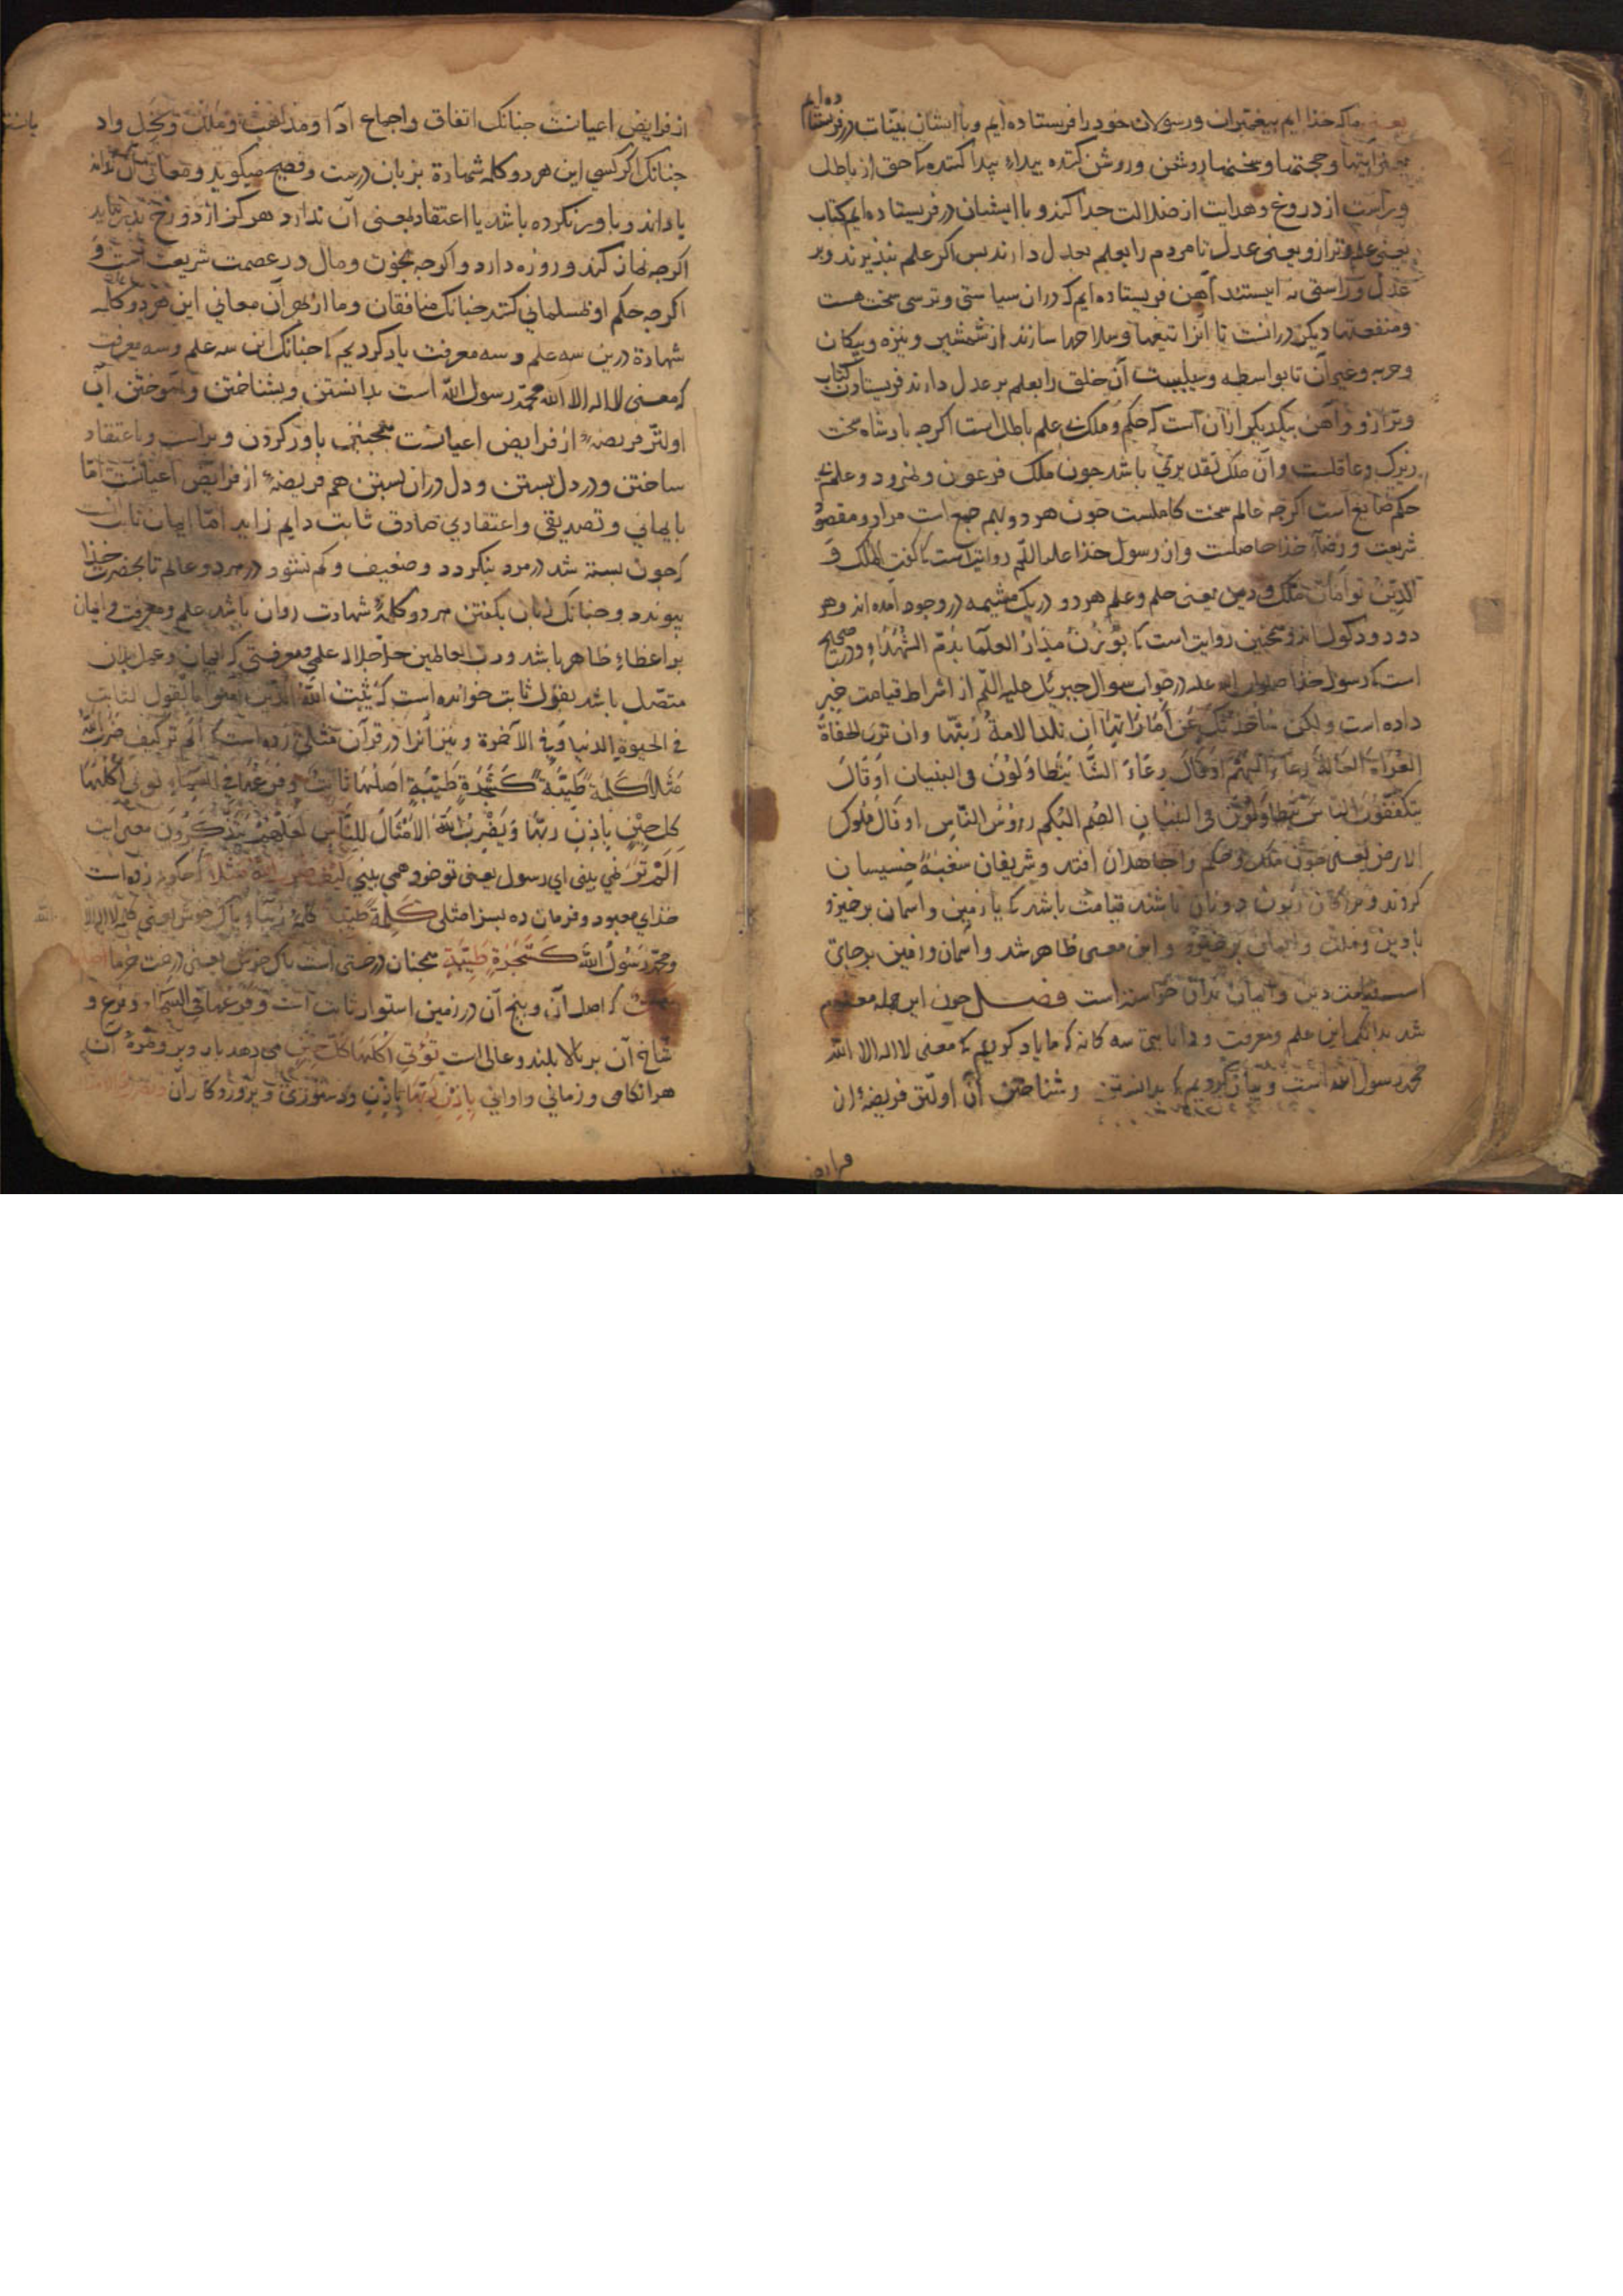 یعنی ما که خذا ایم بیغمبران و رسولان خود را فریستاده ایم و با ایشان بینات در فرستا ده ایم
یعنی ایتها و حجتها و سخنها روشن و روشن کننده بیدا بیدا کننده کی حق از باطل
و راست از دروغ و هدایت از ضلالت جدا کند و با ایشان در فریستاده ایم کتاب
یعنی علم و ترازو یعنی عدل تا مردم را بعلم بعدل دارند بس اکر علم نبذیرند و بر
عدل و راستی نه ایستند آهن فریستاده ایم که دران سیاستی و ترسی سخت هست
و منفعتها دیکر درانست تا ازانا تیغها و سلاحها سازند از شمشیر و نیزه و بیکان
و حربه و غیر آن تا بواسطه و سیلیت آن خلق را بعلم بر عدل دارند فریستادن کتاب
و ترازو و آهن بیکدیکر ازان است که حکم و ملک بی علم باطل است اکرجه بادشاه سخت
زیرک و عاقلست وآن ملک نقد بربی باشد جون ملک فرعون و نمرود و علم بی
حکم ضایع است اکرجه عالم سخت کاملست جون هر دو بهم جمع است مراد و مقصود
شریعت و رضاء خذا حاصلست و از رسول خذا علیه السلم روایت است کی کفت الملک و
الدین توامان ملک و دین یعنی حکم و علم هر دو در یک مشیمه در وجود آمده اند و هر
دو دو دکول اند و همجنین روایت است کی یوزن مداد العلما بدم الشهداء و در صحیح
است کی رسول خذا صلوات الله علیه در جواب سوال جبریل علیه السلم از اشراط قیامت خبر
داده است ولکن ساحدثک عن اماراتها ان تلد الامة ربتها وان تری الحفاة
العراة العالة رعاء البهم او قال رعاء الشا یتطاولون فی البنیان او قال
یتکففون الناس یتطاولون فی البنیان الصم البکم رؤس الناس او قال ملوک
الارض یعنی جون ملک و حکم واجاهلان افتد و شریفان سغبه خسیسان
کردند و بزرکان زبون دونان باشند قیامت باشد کی یا زمین و اسمان برخیزد
یا دین و ملت و ایمان برخیزد و این معنی ظاهر شد و اسمان و زمین برجای
است قیامت دین و ایمان بدان خواسته است فصل جون این جمله معلوم
شد بدانک این علم و معرفت و دانایی سه کانه که ما یاد کردیم کی معنی لا اله الا الله
محمد رسول الله است و بیان کردیم کی بدانستن و شناختن آن اولتر فریضه ازان
فرایض
از فرایض اعیانست جنانک اتفاق و اجماع ادا و مذاهب و ملل و نحل واد
جنانک اکر کسی این هر دو کلمه شهادة بزبان درست و فصیح میکوید و معانی آن نداند
یا داند و باور نکرده باشد یا اعتقاد بمعنی آن ندارد هرکز از دوزخ بدر نیاید
اکرجه نماز کند و روزه دارد و اکرجه بخون و مال در عصمت شریعت است و
اکرجه حکم او بمسلمانی کنند جنانک منافقان و ما از بهر آن معانی این هر دو کلمه
شهادة درین سه علم و سه معرفت یاد کردیم کی جنانک این سه علم و سه معرفت
که معنی لا اله الا الله محمد رسول الله است بدانستن و بشناختن و آموختن آن
اولتر فریضه از فرایض اعیانست همجنین باور کردن و براست و باعتقاد
ساختن و در دل بستن و دل دران بستن هم فریضه از فرایض اعیانست اما
بایمانی و تصدیقی و اعتقادی صادق ثابت دایم زاید اما ایمان ثابت آنست
که جون بسته شد در مرد بنکردد و ضعیف و کم نشود در هر دو عالم تا بحضرت خذا
بیوندد و جنانک زبان بکفتن هر دو کلمه شهادت روان باشد علم و معرفت و ایمان
بر اعضاء ظاهر باشد و رب العالمین جل جلاله علمی و معرفتی که ایمان و عمل بدان
متصل باشد بقول ثابت خوانده است که یثبت الله الذین امنوا بالقول الثابت
فی الحیوة الدنیا و فی الآخرة و بین آنرا در قرآن مثلی زده است کی الم تر کیف ضرب الله
مثلا کلمة طیبة کشجرة طیبة اصلها ثابت و فرعها فی السماء توتی اکلها
کل حین باذن ربها و یضرب الله الامثال للناس لعلهم یتذکرون معنی ایت
الم تر نمی بینی ای رسول یعنی تو خود همی بینی کیف ضرب الله مثلا که جکونه زده است
خذای معبود و فرمان ده بسزا مثلی کلمة طیبة کلمه زیباء باک خوش یعنی کلمه لا اله الا الله
و محمد رسول الله کشجرة طیبة همجنان درختی است باک خوش یعنی درخت خرما اصلها
ثابت که اصل آن و بیخ آن در زمین استوار ثابت است و فرعها فی السماء و فرع و
شاخ آن بر بالا بلند و عالی است توتی اکلها کل حین می دهد بار و بر و ثمره آن
هر انکامی و زمانی و اوانی باذن ربها باذن و دستوری و بروردکار آن